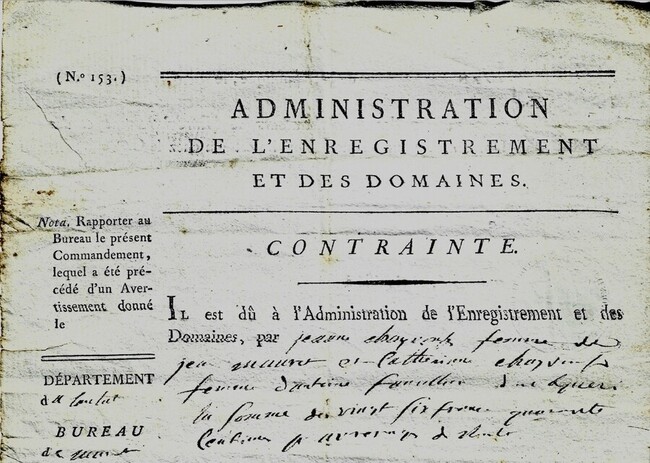 (N.º 153.)
ADMINISTRATION
DE L'ENREGISTREMENT
ET DES DOMAINES.
Nota. Rapporter au
Bureau le présent
Commandement,
lequel a été pré-
cédé d'un Aver-
tissement donné
le
DÉPARTEMENT
du
BUREAU
de
CONTRAINTE.
IL est dû à l'Administration de l'Enregistrement et des
Domaines, par jeanne femme de
jean et Catherine
femme d'antoine
la somme de vingt six francs quarante
Centimes